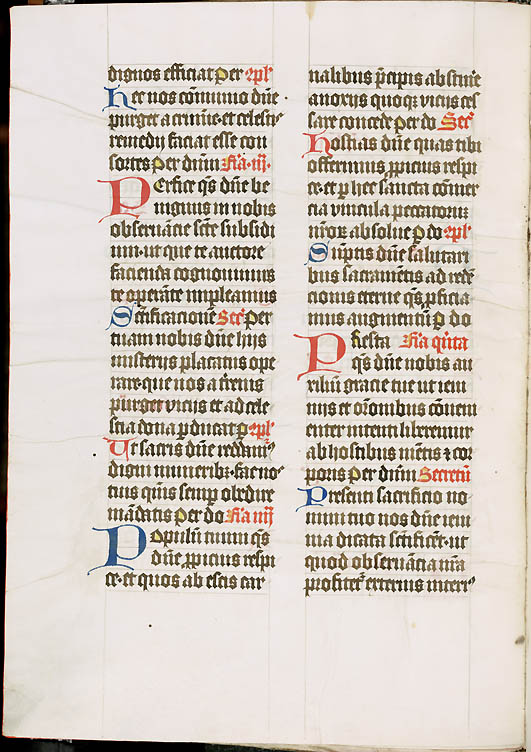 dignos efficiat Per ɔpl'
Hec nos cōmunio dn̄e
purget a crimine· et celestis
remedij faciat esse con
sortes Per dnūm Fīa · iij ·
PErfice qs̄ dn̄e be
nignus in nobis
obseruācie sct̄e subsidi
um· ut que te auctore
facienda cognouimus
te operāte impleamus
SCtificationē Sec̄ Per
tuam nobis dn̄e hijs
misterijs placatus ope
rare· que nos a t̄renis
purget vicijs et ad cele
stia dona ꝑducat P ɔpl'
Ut sacris dn̄e reddam᷒
digni muneribꝫ· fac nos
tuis qūis semꝑ obedire
mādatis Per do Fīa iiij
POpulū tuum qs̄
dn̄e ꝓpicius respi
ce· et quos ab escis car
nalibus p̄cipis abstine
a noxijs quoqꝫ vicijs ces
sare concede Per do Sec̄
Hostias dn̄e quas tibi
offerimus ꝓpicius respi
ce· et ꝑ hec sancta cōmer
cia vincula peccatorum
nr̄orꝫ absolue P do ɔpl'
Sūptis dn̄e salutari
bus sacramētis ad redē
cionis eterne qs̄ ꝓficia
mus augmentū P do
PResta Fīa qi̅nta
qs̄ dn̄e nobis au
xiliū gracie tue ut ieiu
nijs et or̄onibus conueni
enter intenti liberemur
ab hostibus mētis ⁊ cor
poris Per dnūm Secretū
Presenti sacrificio no
mini tuo nos dn̄e ieiu
nia dicata sctificēt· ut
quod obseruācia nr̄a
profitet᷑ exterius interi᷒